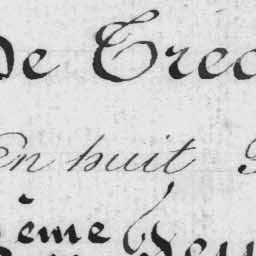 De Trec
En huit
ème